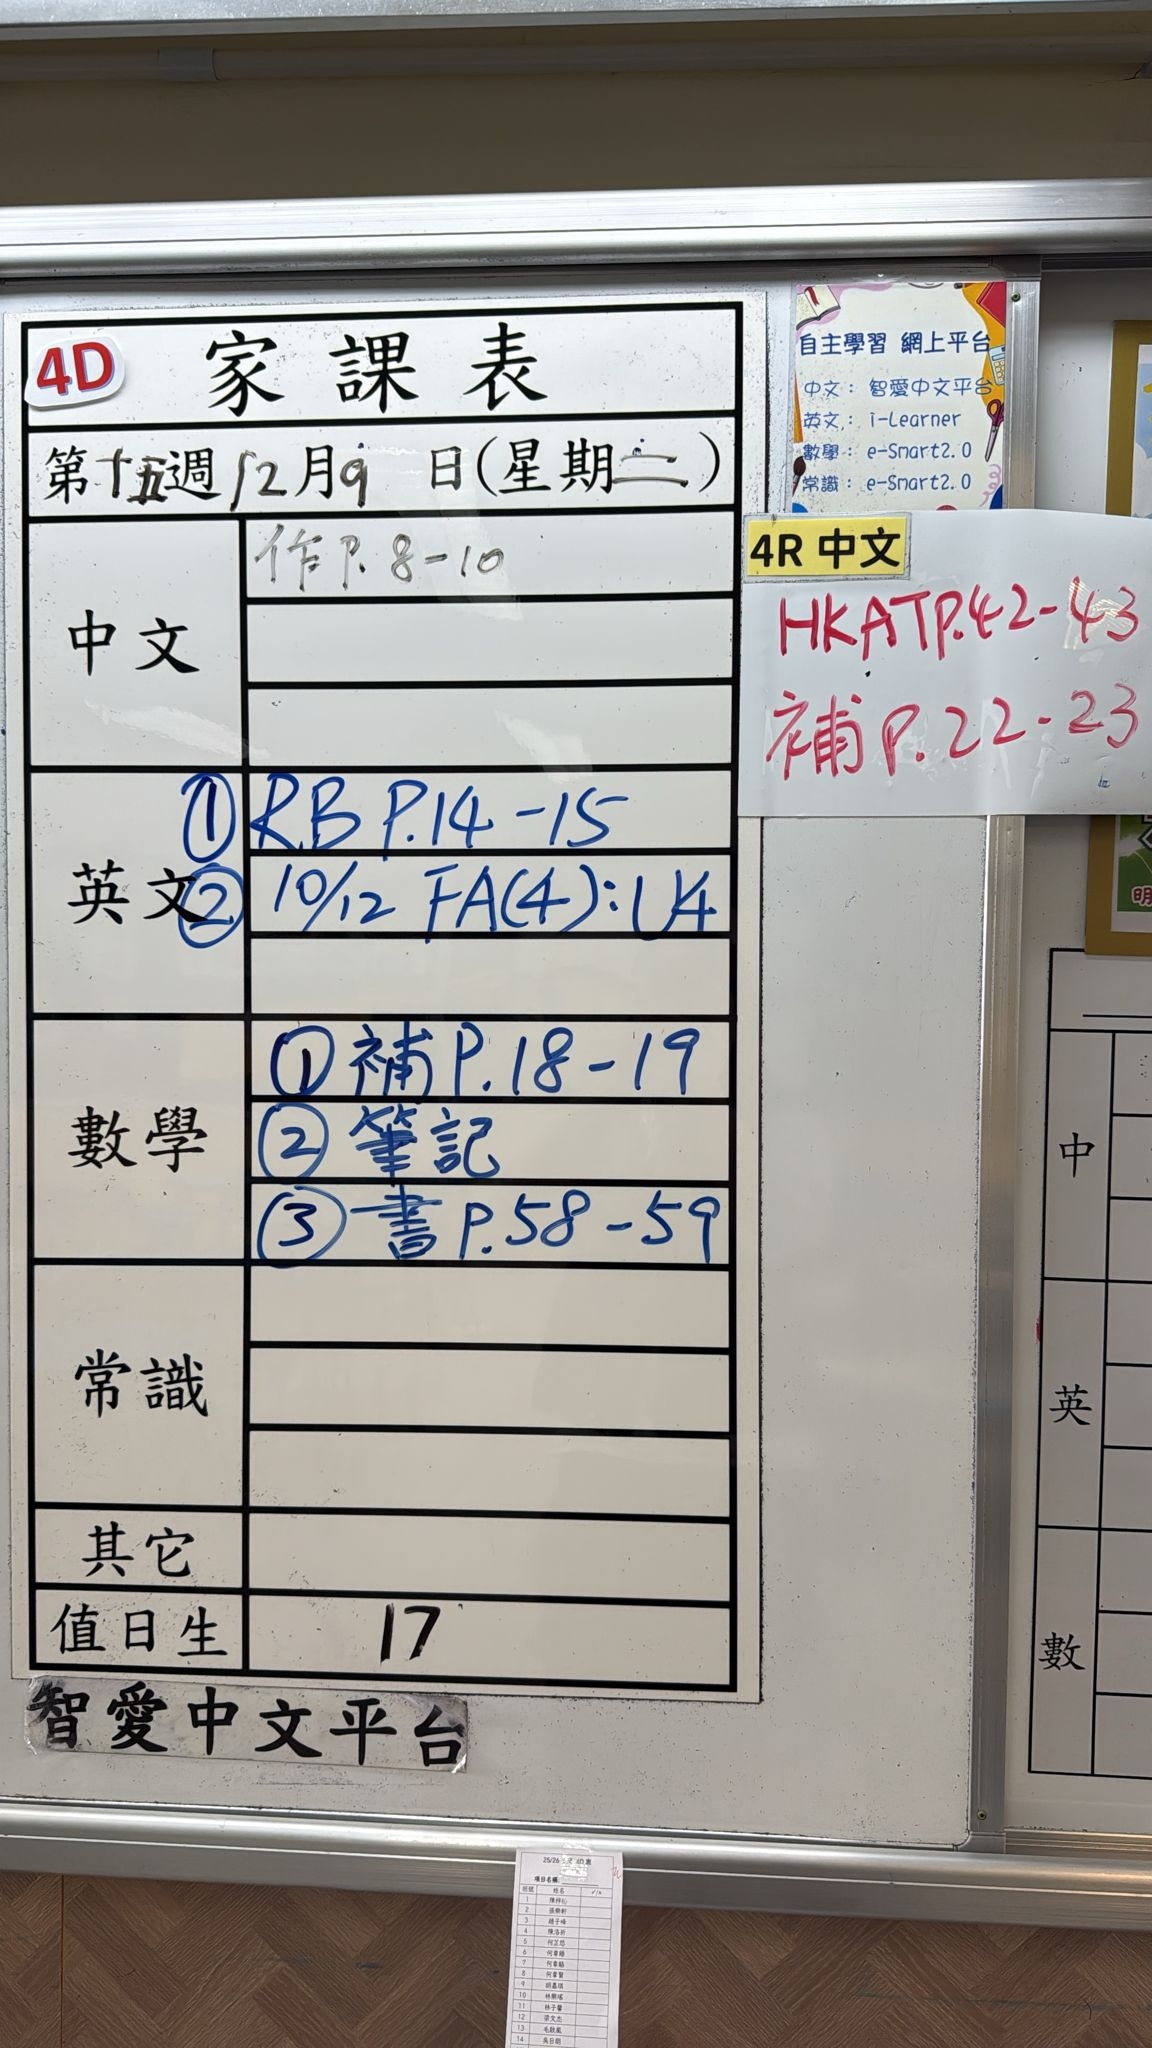 4D
家課表
第十五週12月9日(星期二)
中文
作P.8-10
英文
① RB P.14-15
② 10/12 FA(4): U4
數學
① 補P.18-19
② 筆記
③ 書P.58-59
常識
其它
值日生
17
智愛中文平台
自主學習 網上平台
中文：智愛中文平台
英文：i-Learner
數學：e-Smart2.0
常識：e-Smart2.0
4R 中文
HKATP.42-43
補P.22-23
明
中
英
數
25/26
項目名稱:
班號 姓名 ✓/×
1
2
3
4
5
6
7
8
9
10
11
12
13
14